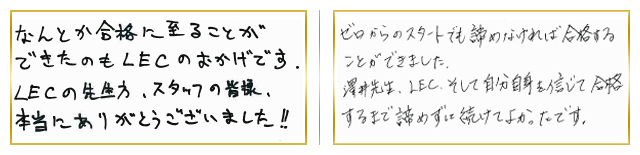 なんとか合格に至ることが
できたのもLECのおかげです.
LECの先生方、スタッフの皆様、
本当にありがとうございました!!
ゼロからのスタートでも諦めなければ合格する
ことができました.
澤井先生、LEC、そして自分自身を信じて合格
するまで諦めずに続けてよかったです.